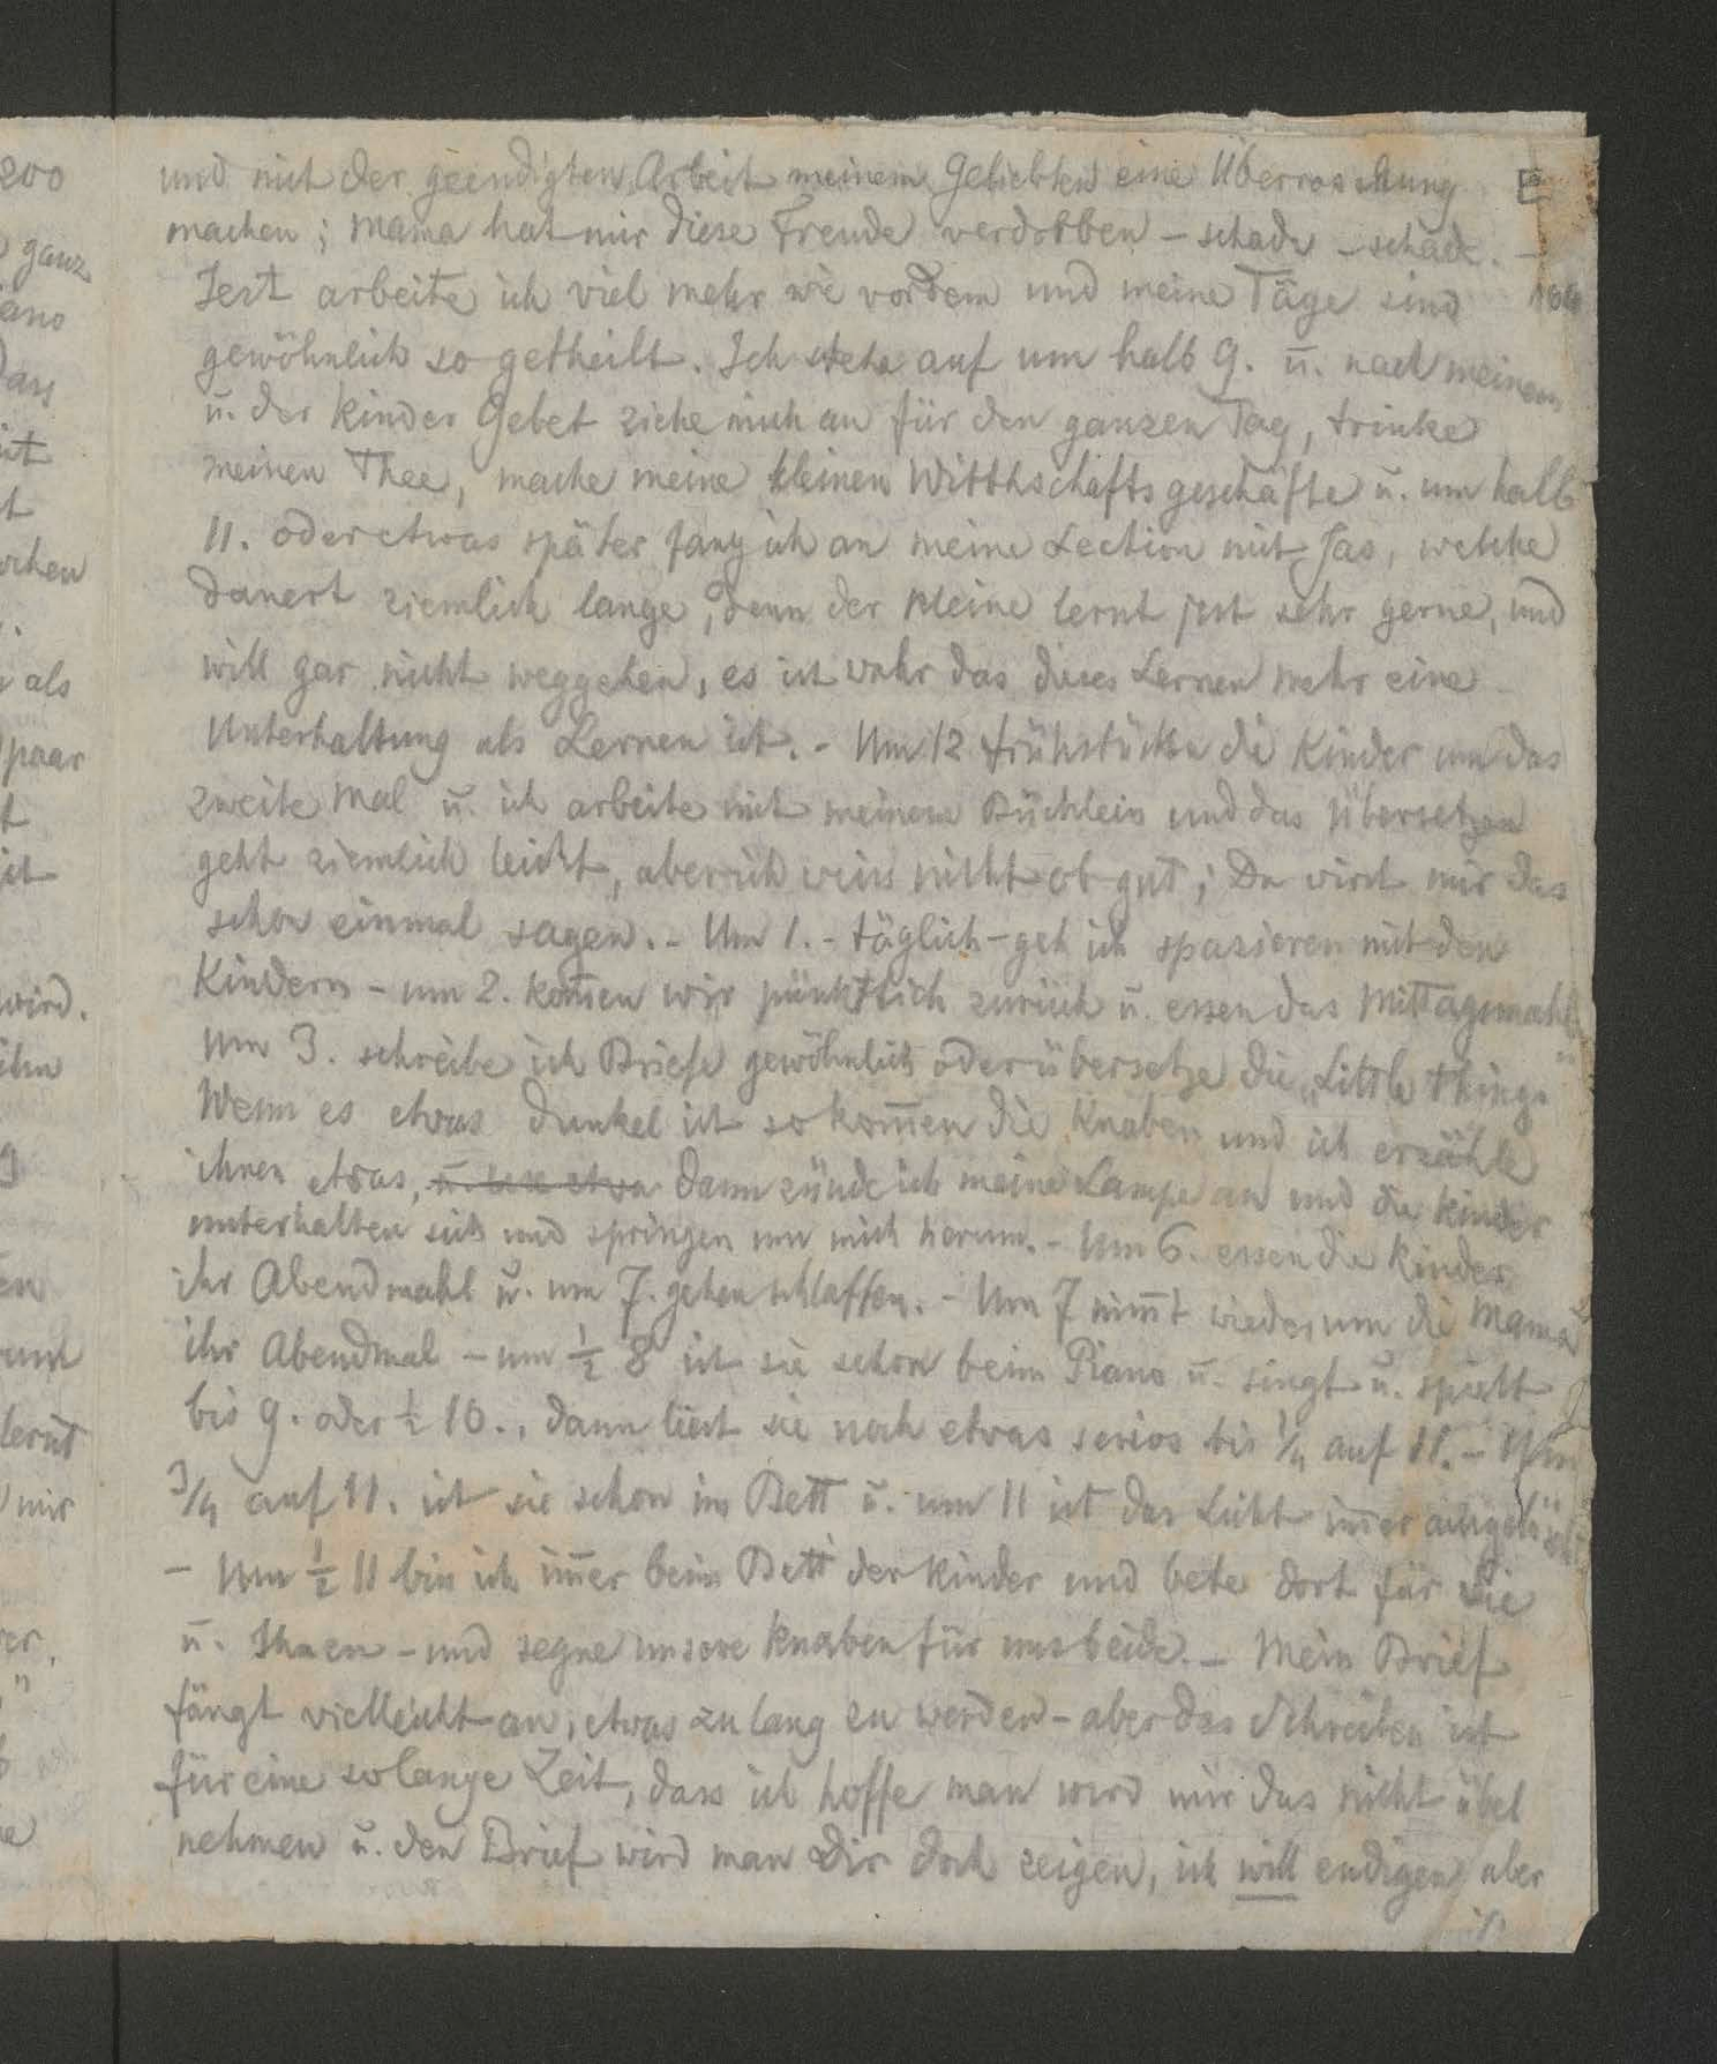 und mit der geendigten Arbeit meinem Geliebten eine Überraschung
machen; Mama hat mir diese Freude verdorben - schade - schade. -
Jezt arbeite ich viel mehr wie vordem und meine Täge sind
gewöhnlich so getheilt. Ich stehe auf um halb 9. ū. nach meinem
ū. der Kinder Gebet ziehe mich an für den ganzen Tag, trinke
meinen Thee, mache meine kleinen Witthschaftsgeschäfte ū. um halb
11. oder etwas später fang ich an meine Lection mit Jas, welche
dauert ziemlich lange, denn der Kleine lernt jezt sehr gerne, und
will gar nicht weggehen, es ist wahr das dieses Lernen mehr eine
Unterhaltung als Lernen ist. - Um 12 frühstücken die Kinder um das
zweite Mal ū. ich arbeite mit meinem Büchlein und das Übersetzen
geht ziemlich leicht, aber ich weiss nicht ob gut; Du wirst mir das
schon einmal sagen. - Um 1. - täglich - geh ich spazieren mit den
Kindern - um 2. kom̄en wir pünktlich zurück ū. essen das Mittagsmahl
Um 3. schreibe ich Briefe gewöhnlich oder übersetze die „Little things"
Wenn es etwas dunkel ist so kom̄en die Knaben und ich erzähle
ihnen etwas, dann zünde ich meine Lampe an und die Kinder
unterhalten sich und springen um mich herum. - Um 6. essen die Kinder
ihr Abendmahl ū. um 7. gehen schlaffen. - Um 7 nim̄t wiederum die Mama
ihr Abendmal - um ½ 8 ist sie schon beim Piano ū. singt ū. spielt
bis 9. oder ½ 10., dann liest sie noch etwas serios bis ¼ auf 11. - Um
¾ auf 11. ist sie schon im Bett ū. um 11 ist das Licht im̄er ausgelöscht
- Um ½ 11 bin ich im̄er beim Bett der Kinder und bete dort für Sie
ū. Ihnen - und segne unsere Knaben für uns beide. - Mein Brief
fängt vielleicht an, etwas zu lang zu werden - aber das Schreiben ist
für eine so lange Zeit, dass ich hoffe man wird mir das nicht übel
nehmen ū. den Brief wird man Dir doch zeigen, ich will endigen aber